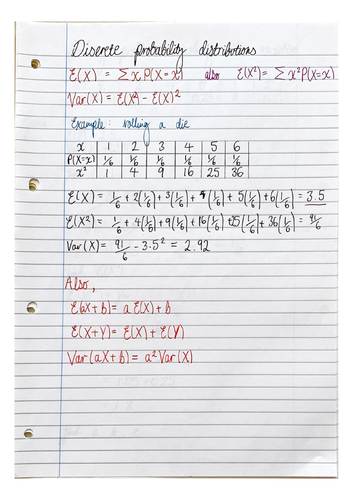 Discrete probability distributions
E(X) = Σ x P(X=x) also E(X²) = Σ x² P(X=x)
Var(X) = E(X²) - E(X)²
Example: rolling a die
x 1 2 3 4 5 6
P(X=x) 1/6 1/6 1/6 1/6 1/6 1/6
x² 1 4 9 16 25 36
E(X) = 1/6 + 2(1/6) + 3(1/6) + 4(1/6) + 5(1/6) + 6(1/6) = 3.5
E(X²) = 1/6 + 4(1/6) + 9(1/6) + 16(1/6) + 25(1/6) + 36(1/6) = 91/6
Var(X) = 91/6 - 3.5² = 2.92
Also,
E(aX+b) = a E(X) + b
E(X+Y) = E(X) + E(Y)
Var(aX+b) = a² Var(X)